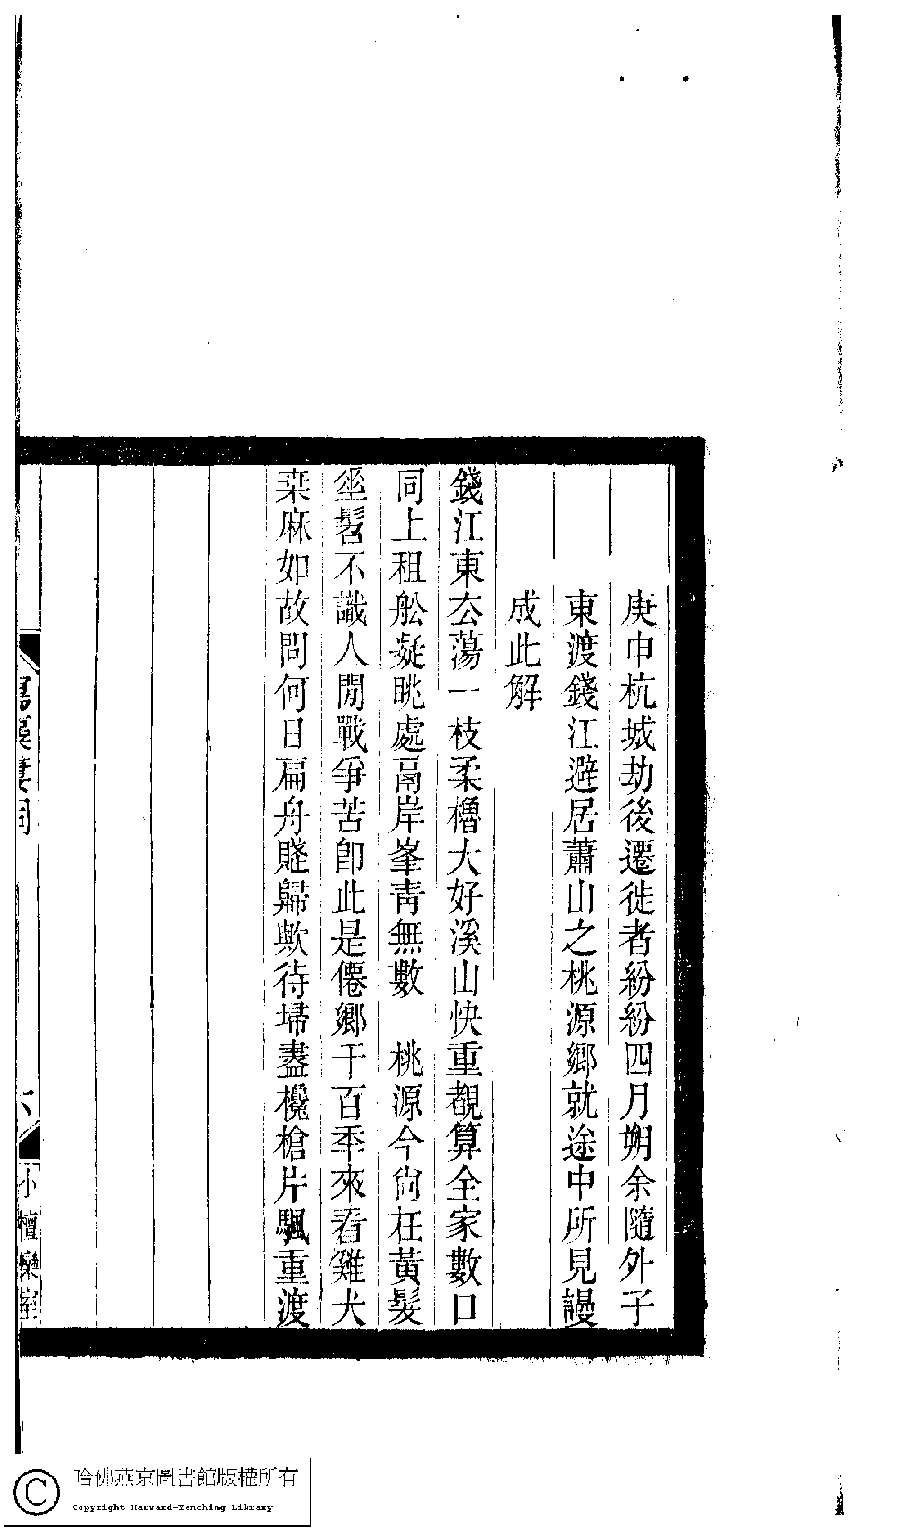 庚申杭城劫後遷徙者紛紛四月朔余隨外子
東渡錢江避居蕭山之桃源鄉就途中所見謾
成此解
錢江東厺蕩一枝柔櫓大好溪山快重覩算全家數口
同上租舩凝眺處鬲岸峯青無數　桃源今尙在黃髮
垂髫不識人閒戰爭苦卽此是僊鄉千百秊來看雞犬
桒麻如故問何日扁舟賦歸歟待埽盡欃槍片颿重渡
六
小檀欒室
哈佛燕京圖書館版權所有
Copyright Harvard-Yenching Library